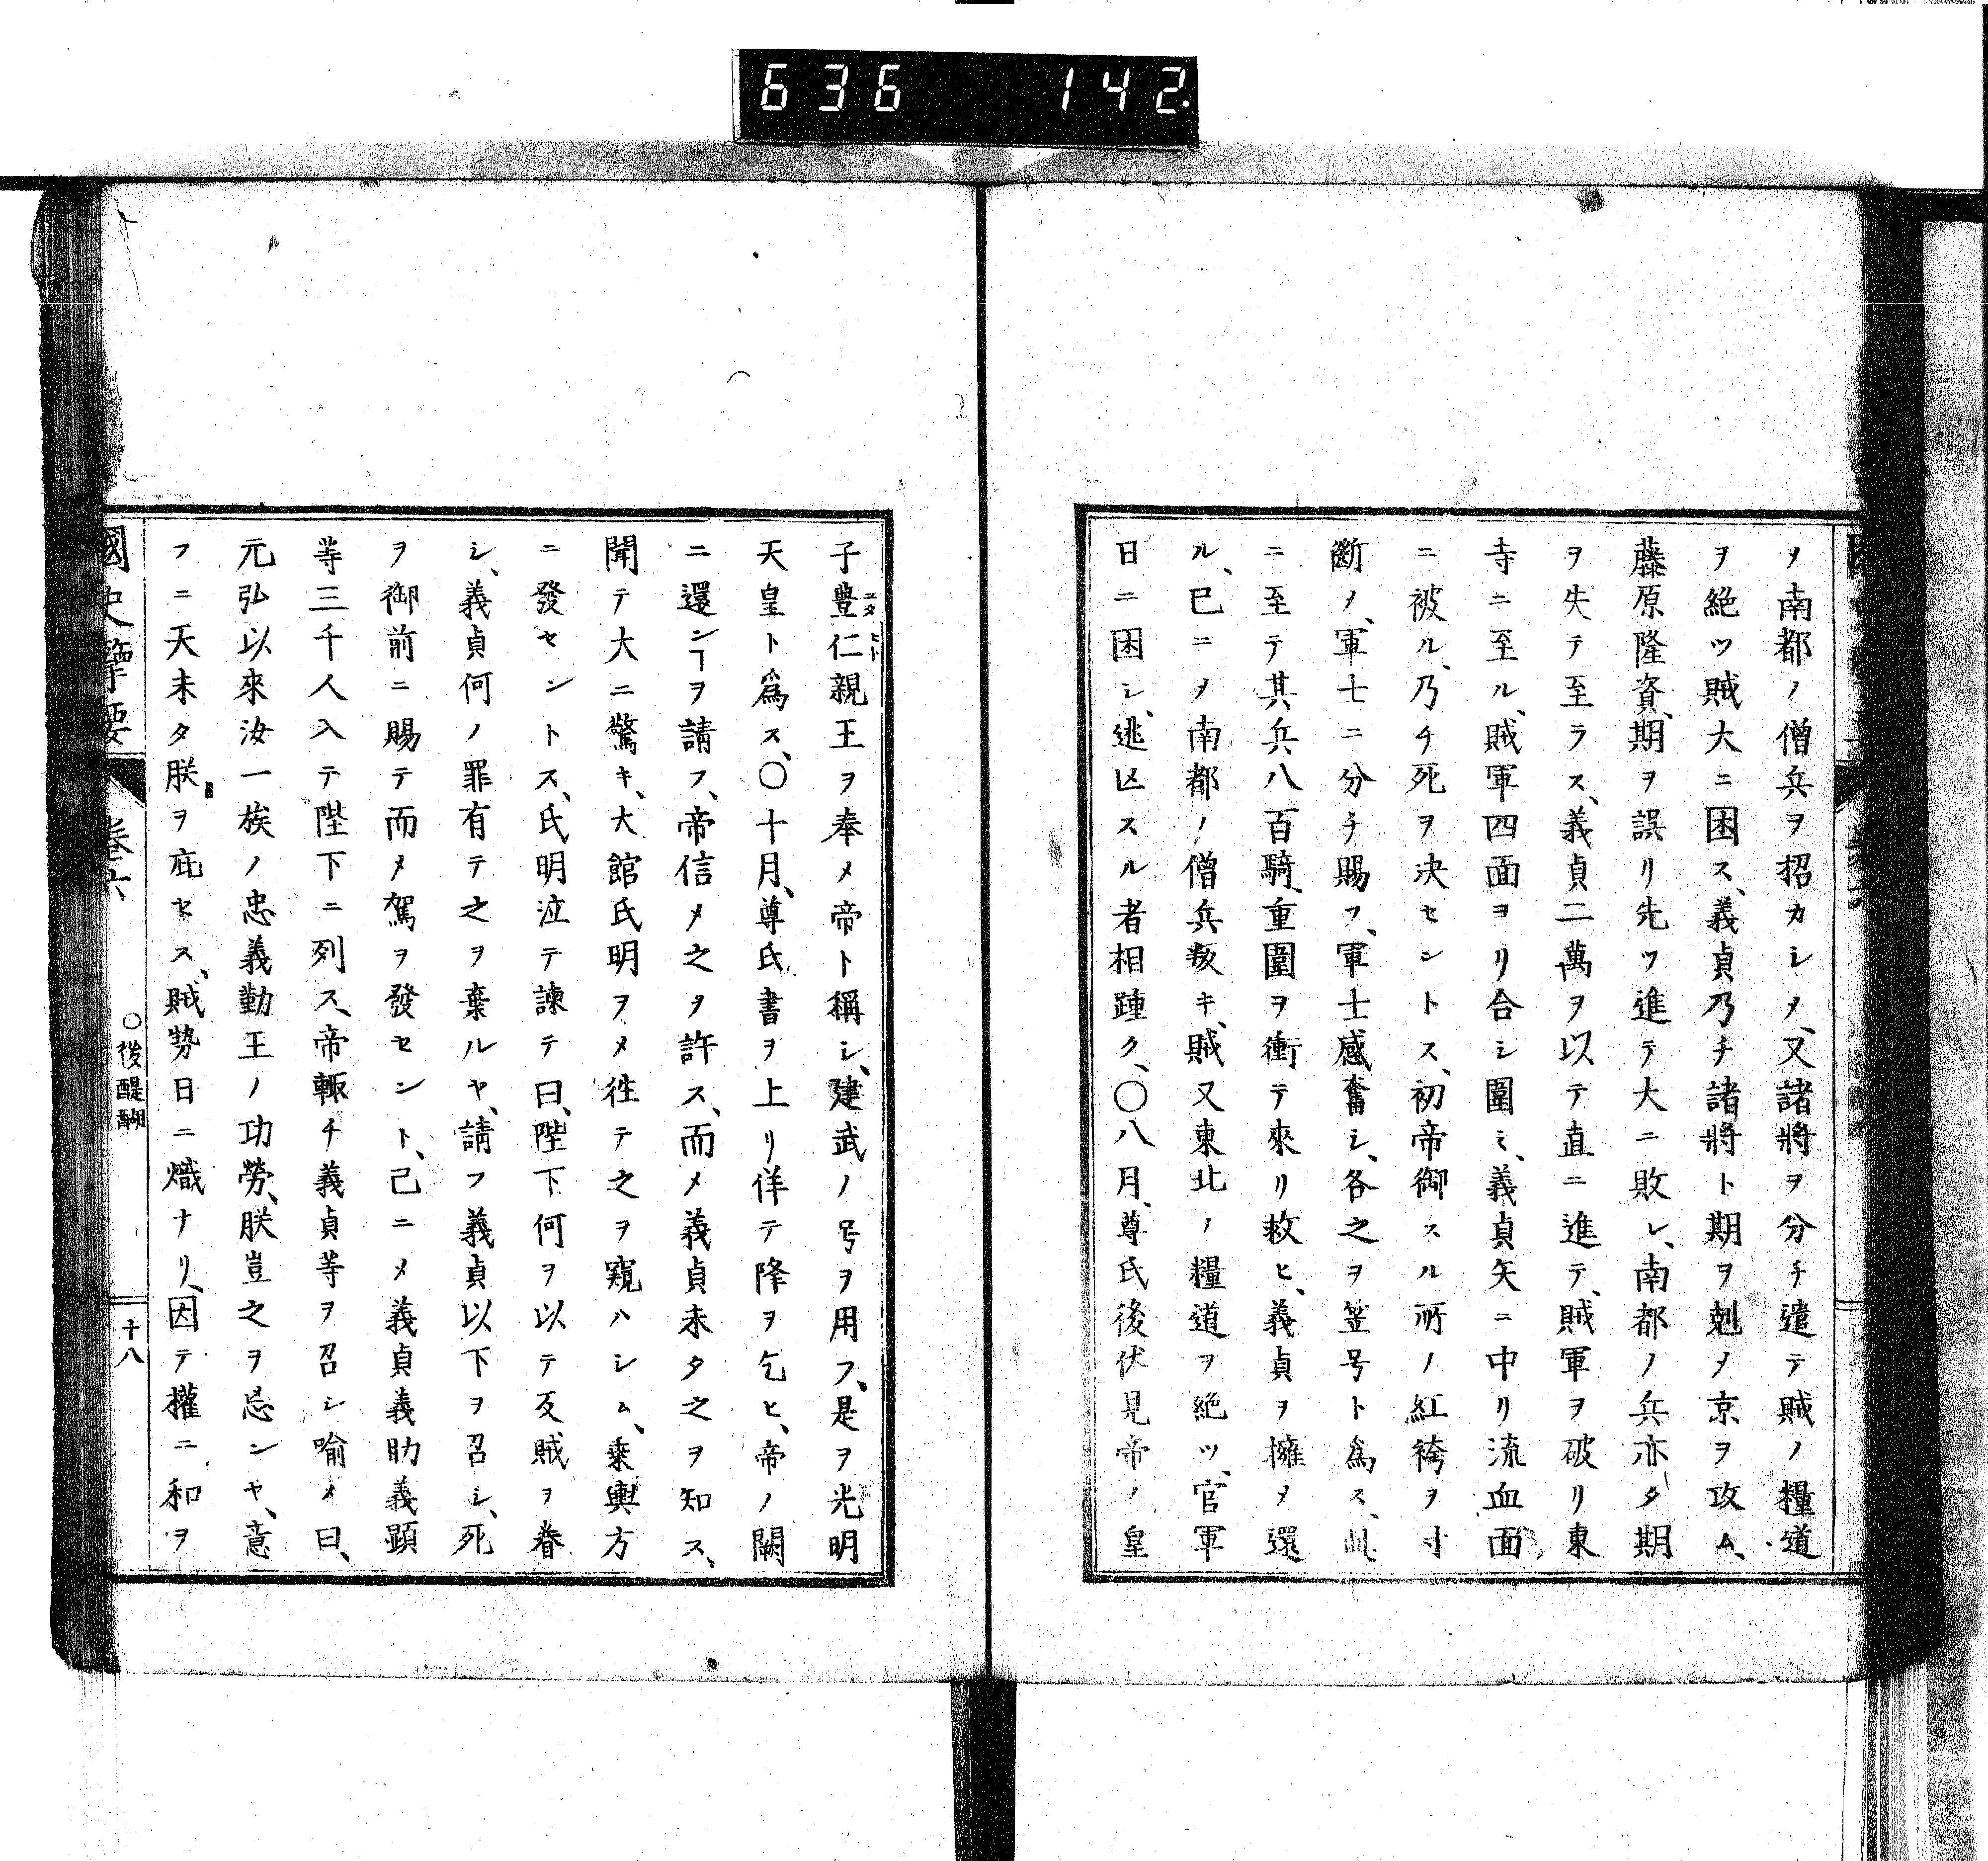 636 142
メ南都ノ僧兵ヲ招カシメ、又諸將ヲ分チ遣テ賊ノ糧道
ヲ絶ツ賊大ニ困ス、義貞乃チ諸將ト期ヲ剋メ京ヲ攻ム、
藤原隆資、期ヲ誤リ先ツ進テ大ニ敗レ、南都ノ兵亦タ期
ヲ失テ至ラス、義貞二萬ヲ以テ直ニ進テ、賊軍ヲ破リ東
寺ニ至ル、賊軍四面ヨリ合シ圍ミ、義貞矢ニ中リ流血面
ニ被ル、乃チ死ヲ決セントス、初帝御スル所ノ紅袴ヲ寸
斷メ、軍士ニ分チ賜フ、軍士感奮シ、各之ヲ笠号ト爲ス、此
ニ至テ其兵八百騎、重圍ヲ衝テ來リ救ヒ、義貞ヲ擁メ還
ル、已ニメ南都ノ僧兵叛キ、賊又東北ノ糧道ヲ絶ツ、官軍
日ニ困シ、逃亡スル者相踵ク、〇八月、尊氏後伏見帝ノ皇
子豊仁親王ヲ奉メ帝ト稱シ、建武ノ号ヲ用フ、是ヲ光明
ユタヒト
天皇ト爲ス、〇十月、尊氏書ヲ上リ佯テ降ヲ乞ヒ、帝ノ闕
ニ還ンヿヲ請フ、帝信メ之ヲ許ス、而メ義貞未タ之ヲ知ス、
聞テ大ニ驚キ、大館氏明ヲメ徃テ之ヲ窺ハシム、乗輿方
ニ發センントス、氏明泣テ諫テ曰、陛下何ヲ以テ反賊ヲ眷
シ、義貞何ノ罪有テ之ヲ棄ルヤ、請フ義貞以下ヲ召シ、死
ヲ御前ニ賜テ而メ駕ヲ發セント、已ニメ義貞義助義顕
等三千人入テ陛下ニ列ス、帝輙チ義貞等ヲ召シ喻メ曰、
元弘以來汝一族ノ忠義勤王ノ功勞、朕豈之ヲ忘ンヤ、意
フニ天未タ朕ヲ庇セス、賊勢日ニ熾ナリ、因テ權ニ和ヲ
國史擥要 卷六 〇後醍醐 十八